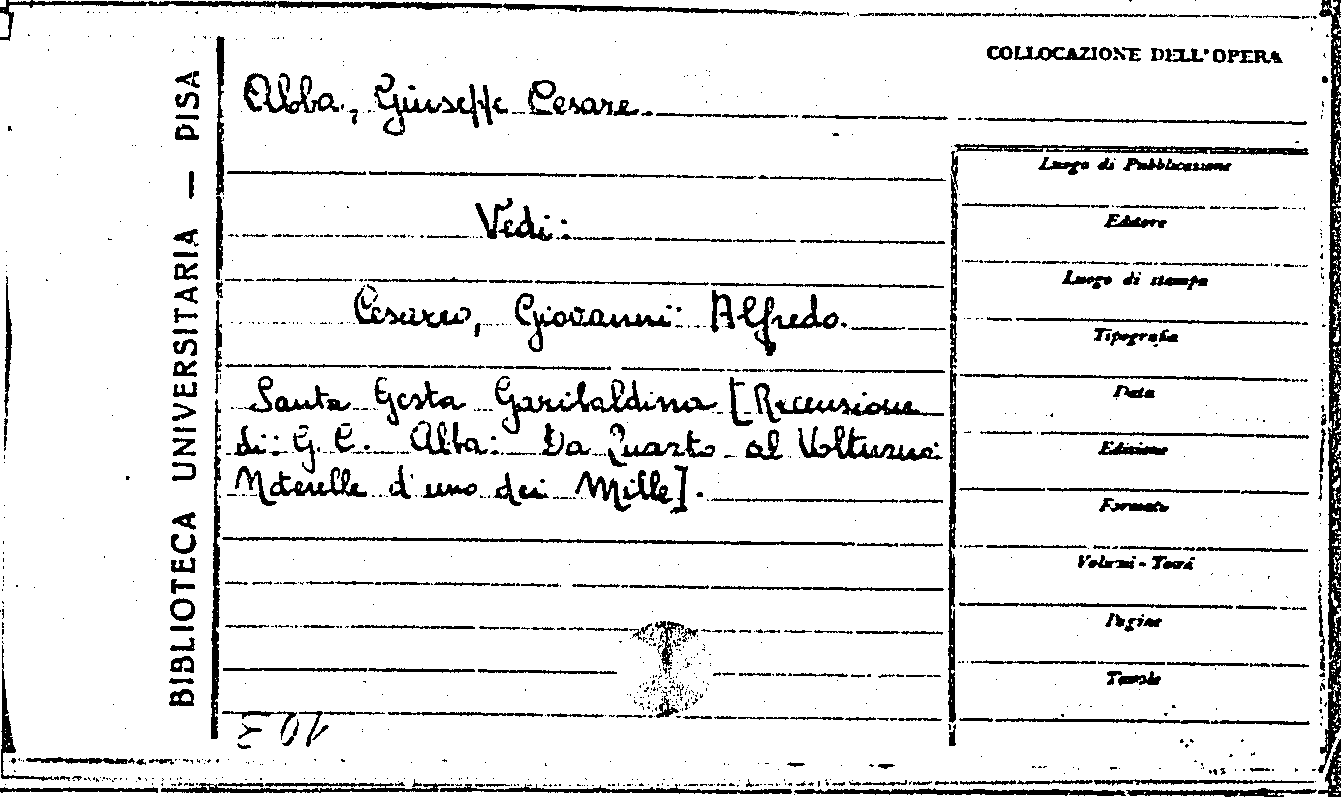 COLLOCAZIONE DELL'OPERA
BIBLIOTECA UNIVERSITARIA — PISA
Abba, Giuseppe Cesare.
Vedi:
Cesareo, Giovanni Alfredo.
Santa Gesta Garibaldina [Recensione
di: G. C. Abba: Da Quarto al Volturno:
Noterelle d'uno dei Mille].
Luogo di Pubblicazione
Editore
Luogo di stampa
Tipografia
Data
Edizione
Formato
Volumi - Tomi
Pagine
Tavole